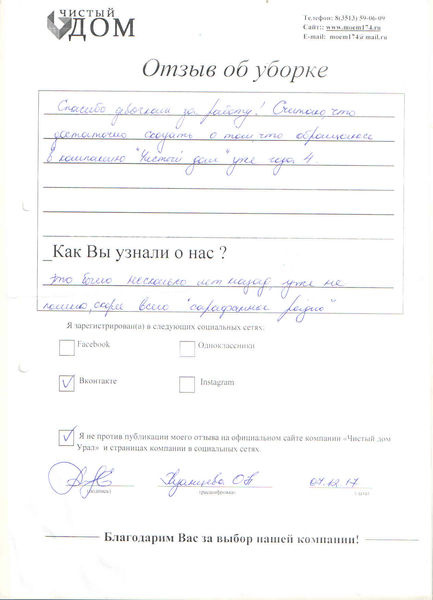 ЧИСТЫЙ
ДОМ
Телефон: 8(3513) 59-06-09
Сайт:: www.moem174.ru
E-mail: moem174@mail.ru
Отзыв об уборке
Спасибо девочкам за работу! Считаю, что
достаточно сказать о том, что обращаюсь
в компанию "Чистый дом" уже года 4.
Как Вы узнали о нас ?
Это было несколько лет назад, уже не
помню, скорее всего "сарафанное радио"
Я зарегистрирован(а) в следующих социальных сетях:
Facebook Одноклассники
Вконтакте Instagram
Я не против публикации моего отзыва на официальном сайте компании «Чистый дом
Урал» и страницах компании в социальных сетях.
Кузнецова О.В. 07.12.17
(подпись) (расшифровка) (дата)
Благодарим Вас за выбор нашей компании!